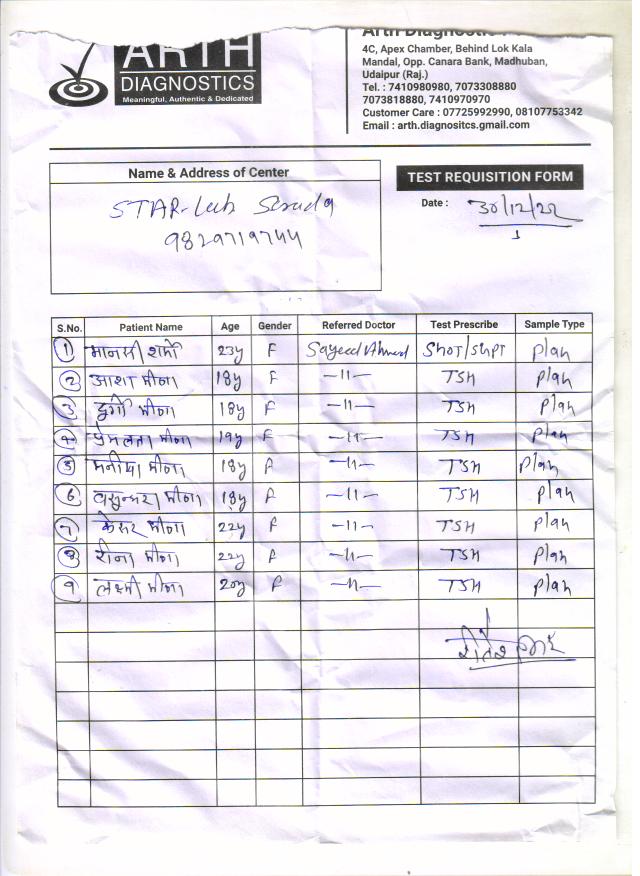 ARTH
DIAGNOSTICS
Meaningful, Authentic & Dedicated
Arth Diagnostic
4C, Apex Chamber, Behind Lok Kala
Mandal, Opp. Canara Bank, Madhuban,
Udaipur (Raj.)
Tel. : 7410980980, 7073308880
7073818880, 7410970970
Customer Care : 07725992990, 08107753342
Email : arth.diagnositcs.gmail.com
Name & Address of Center
STAR-Lab
9829719744
TEST REQUISITION FORM
Date : 30/12/22
S.No. Patient Name Age Gender Referred Doctor Test Prescribe Sample Type
1 मानसी शर्मा 23y F Sayeed Ahmed SGOT/SGPT Plan
2 आशा मीणा 18y F -11- TSH Plan
3 दुर्गा मीणा 18y F -11- TSH Plan
4 प्रेमलता मीणा 19y F -11- TSH Plan
5 मनीषा मीणा 18y F -11- TSH Plan
6 वसुन्धरा मीणा 18y F -11- TSH Plan
7 केसर मीणा 22y F -11- TSH Plan
8 रीना मीणा 22y F -11- TSH Plan
9 लक्ष्मी मीणा 20y F -11- TSH Plan